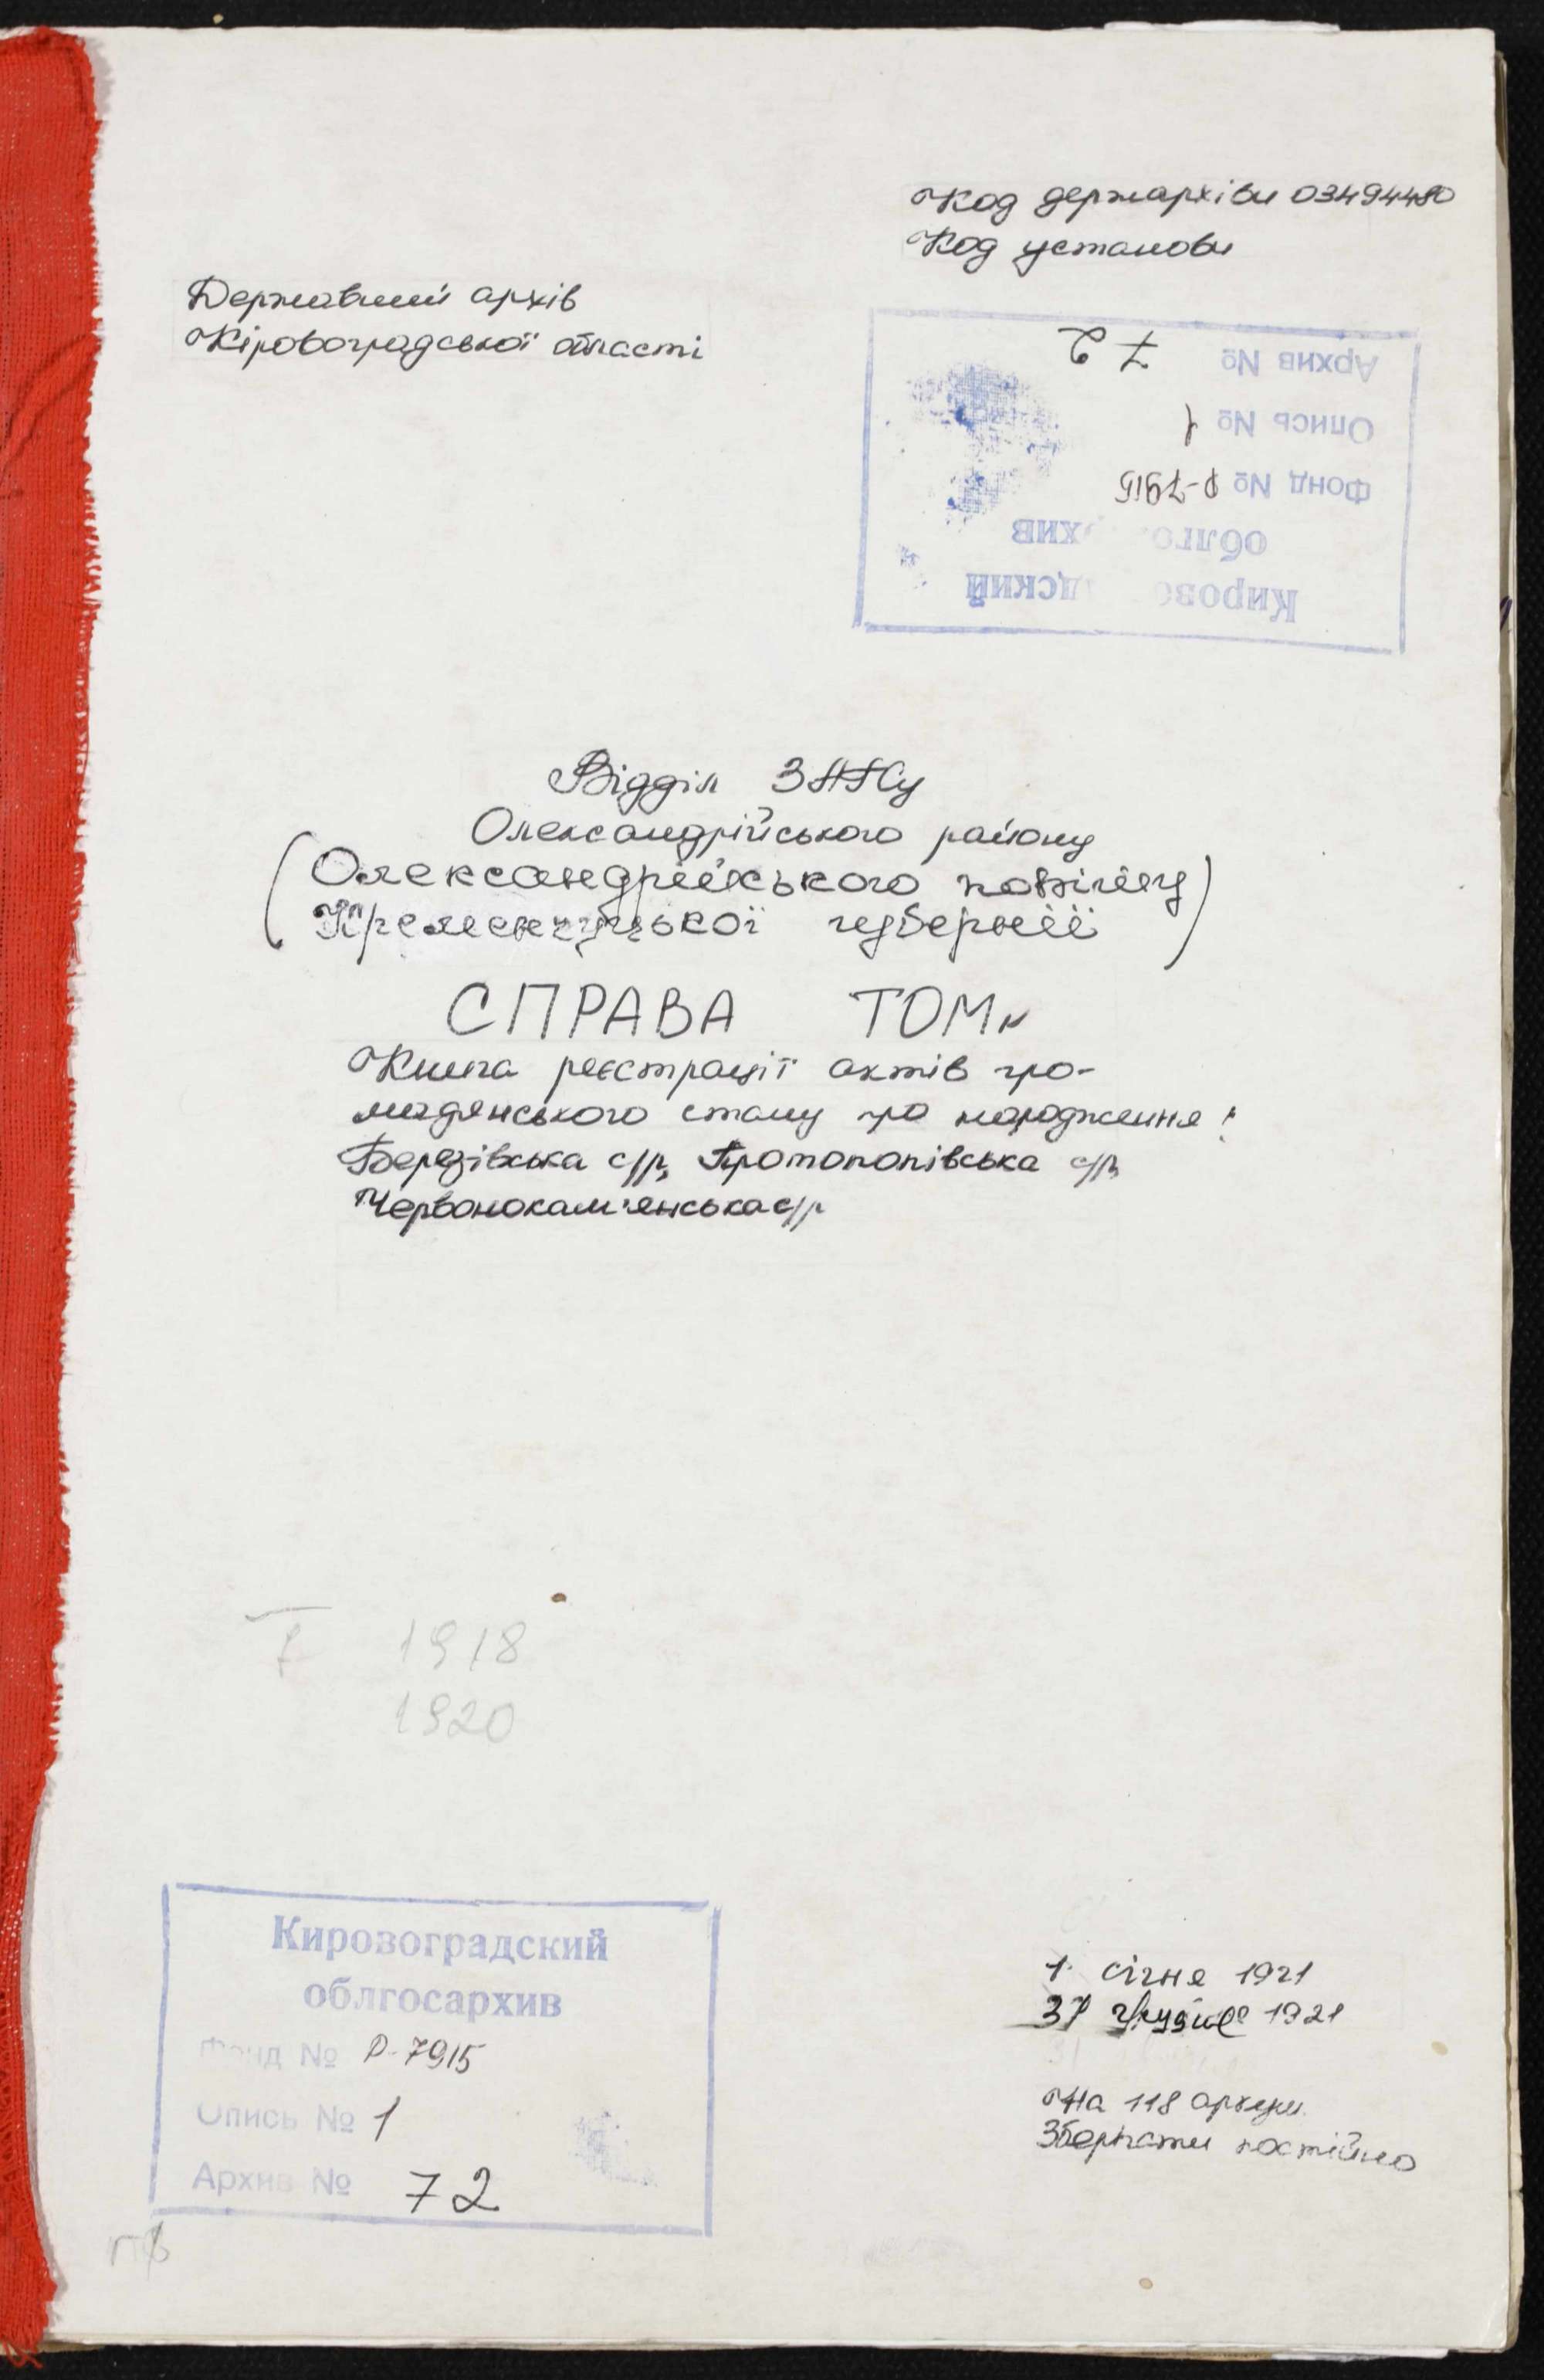 Код держархіви 03494480
Код установи
Державний архів
Кіровоградської області
Архив № 72
Опись № 1
Фонд № Р-7915
Відділ ЗАГСу
Олександрійського району
(Олександрійського повіту
Кременчуцької губернії)
СПРАВА ТОМ
Книга реєстрації актів гро-
мадянського стану про народження:
Березівська с/р, Протопопівська с/р,
Червонокам'янська с/р
1918
1920
Кировоградский
облгосархив
Фонд № Р-7915
Опись № 1
Архив № 72
1 січня 1921
31 грудня 1921
На 118 аркуш.
Зберігати постійно